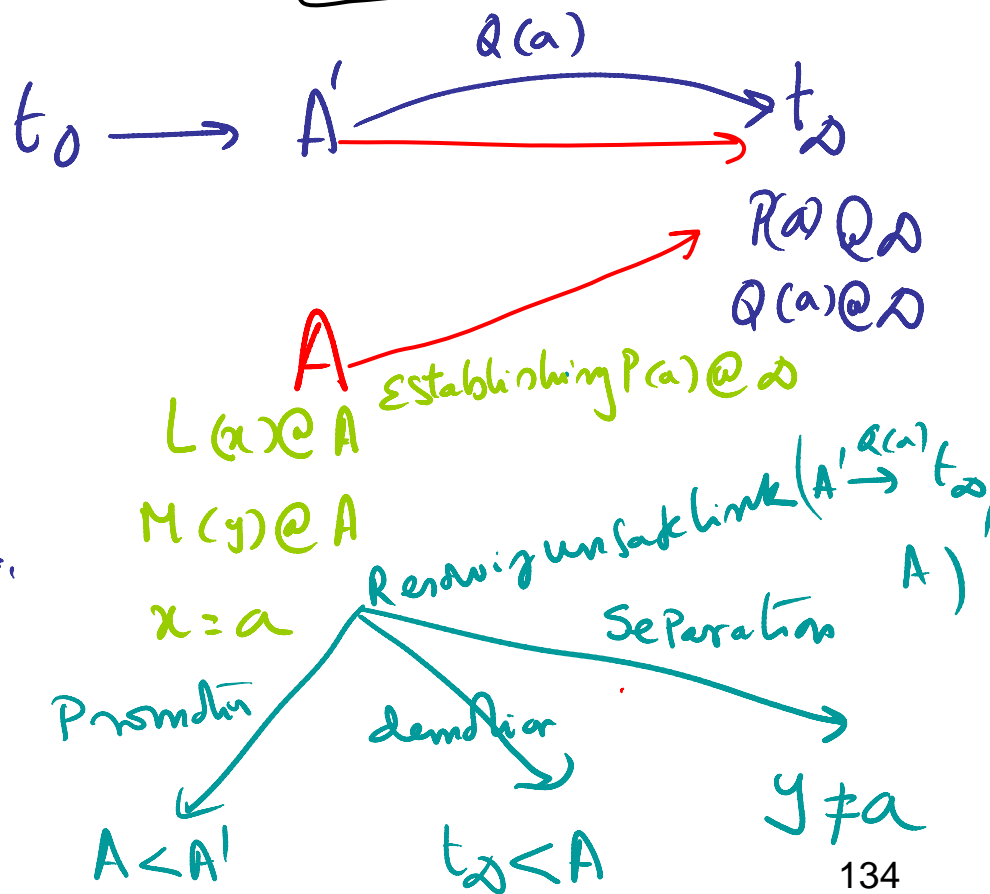 Q(a)
t₀ → A' → t_∞
P(a) @ ∞
Q(a) @ ∞
A
Establishing P(a) @ ∞
L(x) @ A
M(y) @ A
x = a
Resolving unsafe link (A' →^{Q(a)} t_∞,
A)
Separation
Promotion
demotion
A < A'
t_∞ < A
y ≠ a
134